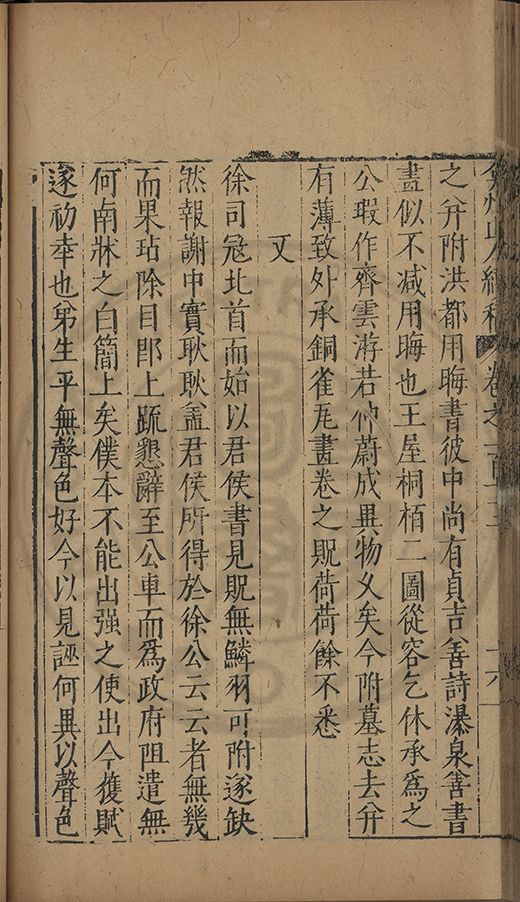 弇州山人續稿 卷之一百 十六
之并附洪都用晦書彼中尚有貞吉善詩瀑泉善書
畫似不減用晦也王屋桐栢二圖從容乞休承爲之
公瑕作齊雲游若仲蔚成異物久矣今附墓志去并
有薄致外承銅雀瓦畫卷之貺荷荷餘不悉
又
徐司寇北首而始以君侯書見貺無鱗羽可附遂缺
然報謝中實耿耿盖君侯所得於徐公云云者無幾
而果玷除目即上䟽懇辭至公車而爲政府阻遣無
何南牀之白簡上矣僕本不能出强之使出今獲賦
遂初幸也弟生平無聲色好今以見誣何異以聲色